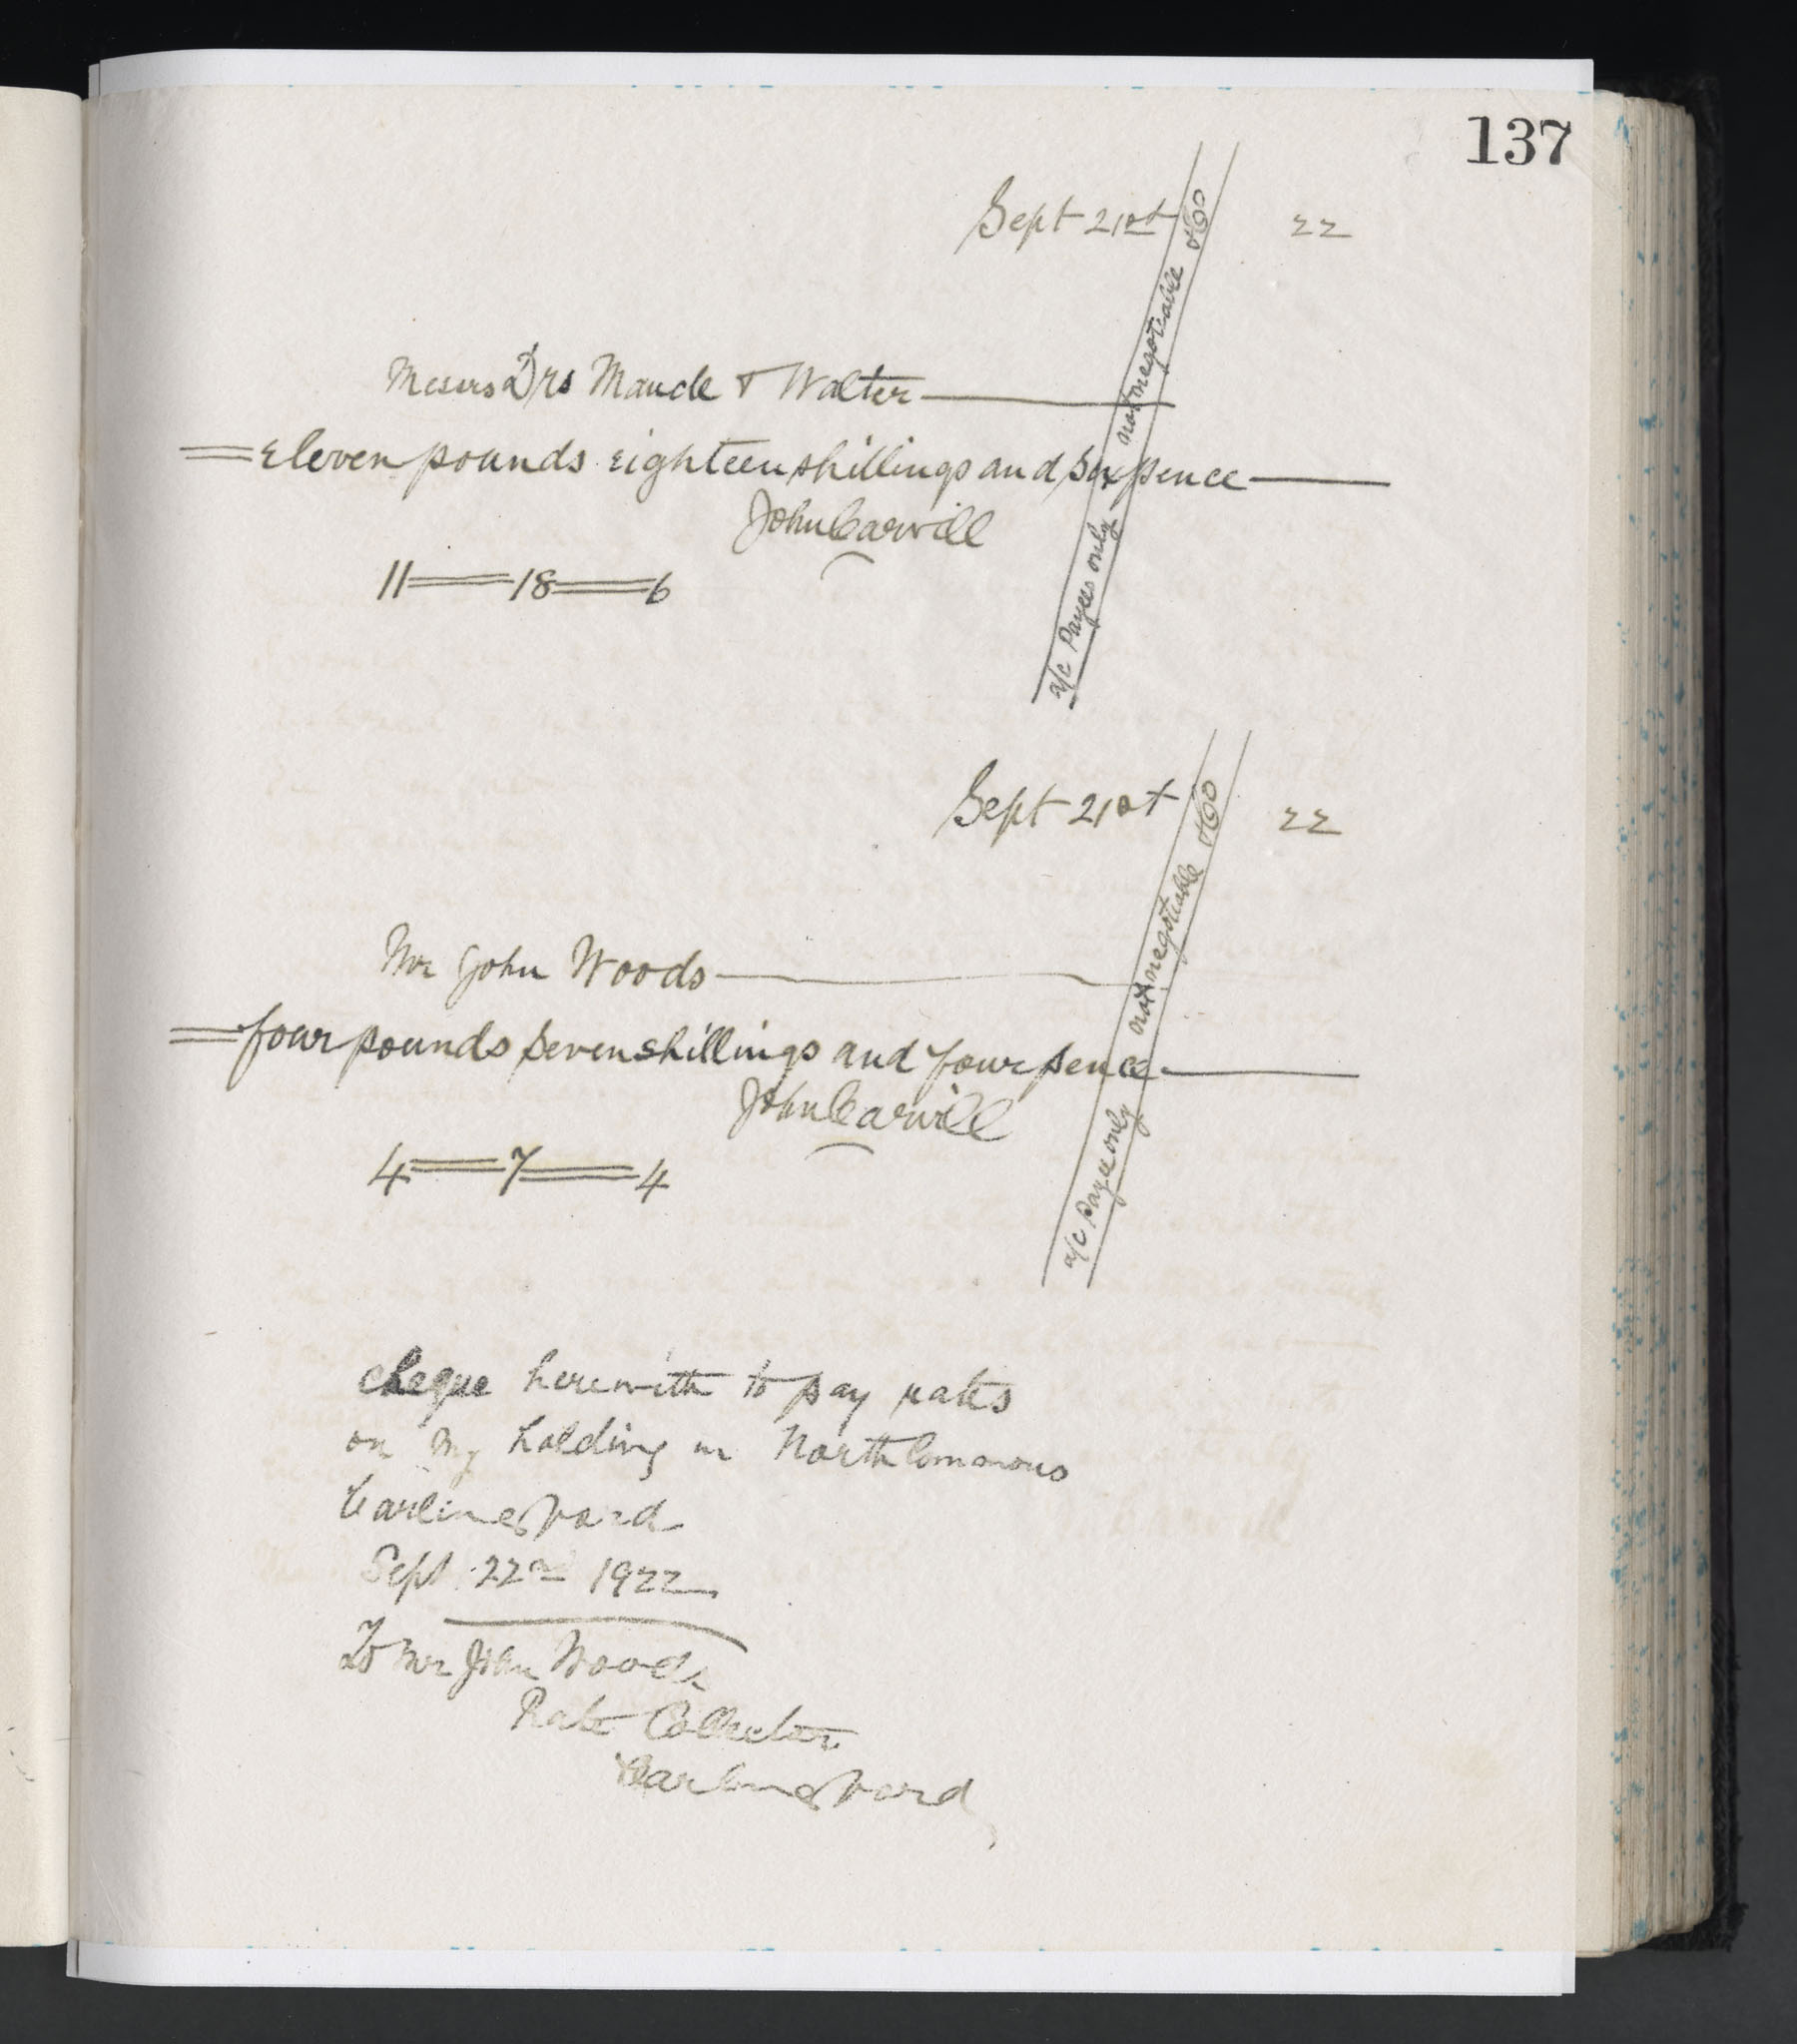 137
Sept 21st 22
Messrs Drs Maude & Walter
eleven pounds eighteen shillings and six pence
John Carvill
11 18 6
a/c Payees only not negotiable & Co
Sept 21st 22
Mr John Woods
four pounds seven shillings and four pence
John Carvill
4 7 4
a/c Payee only not negotiable & Co
cheque herewith to pay rates
on my holding in North Commons
Carlingford
Sept 22nd 1922
To Mr John Woods
Rate Collector
Carlingford